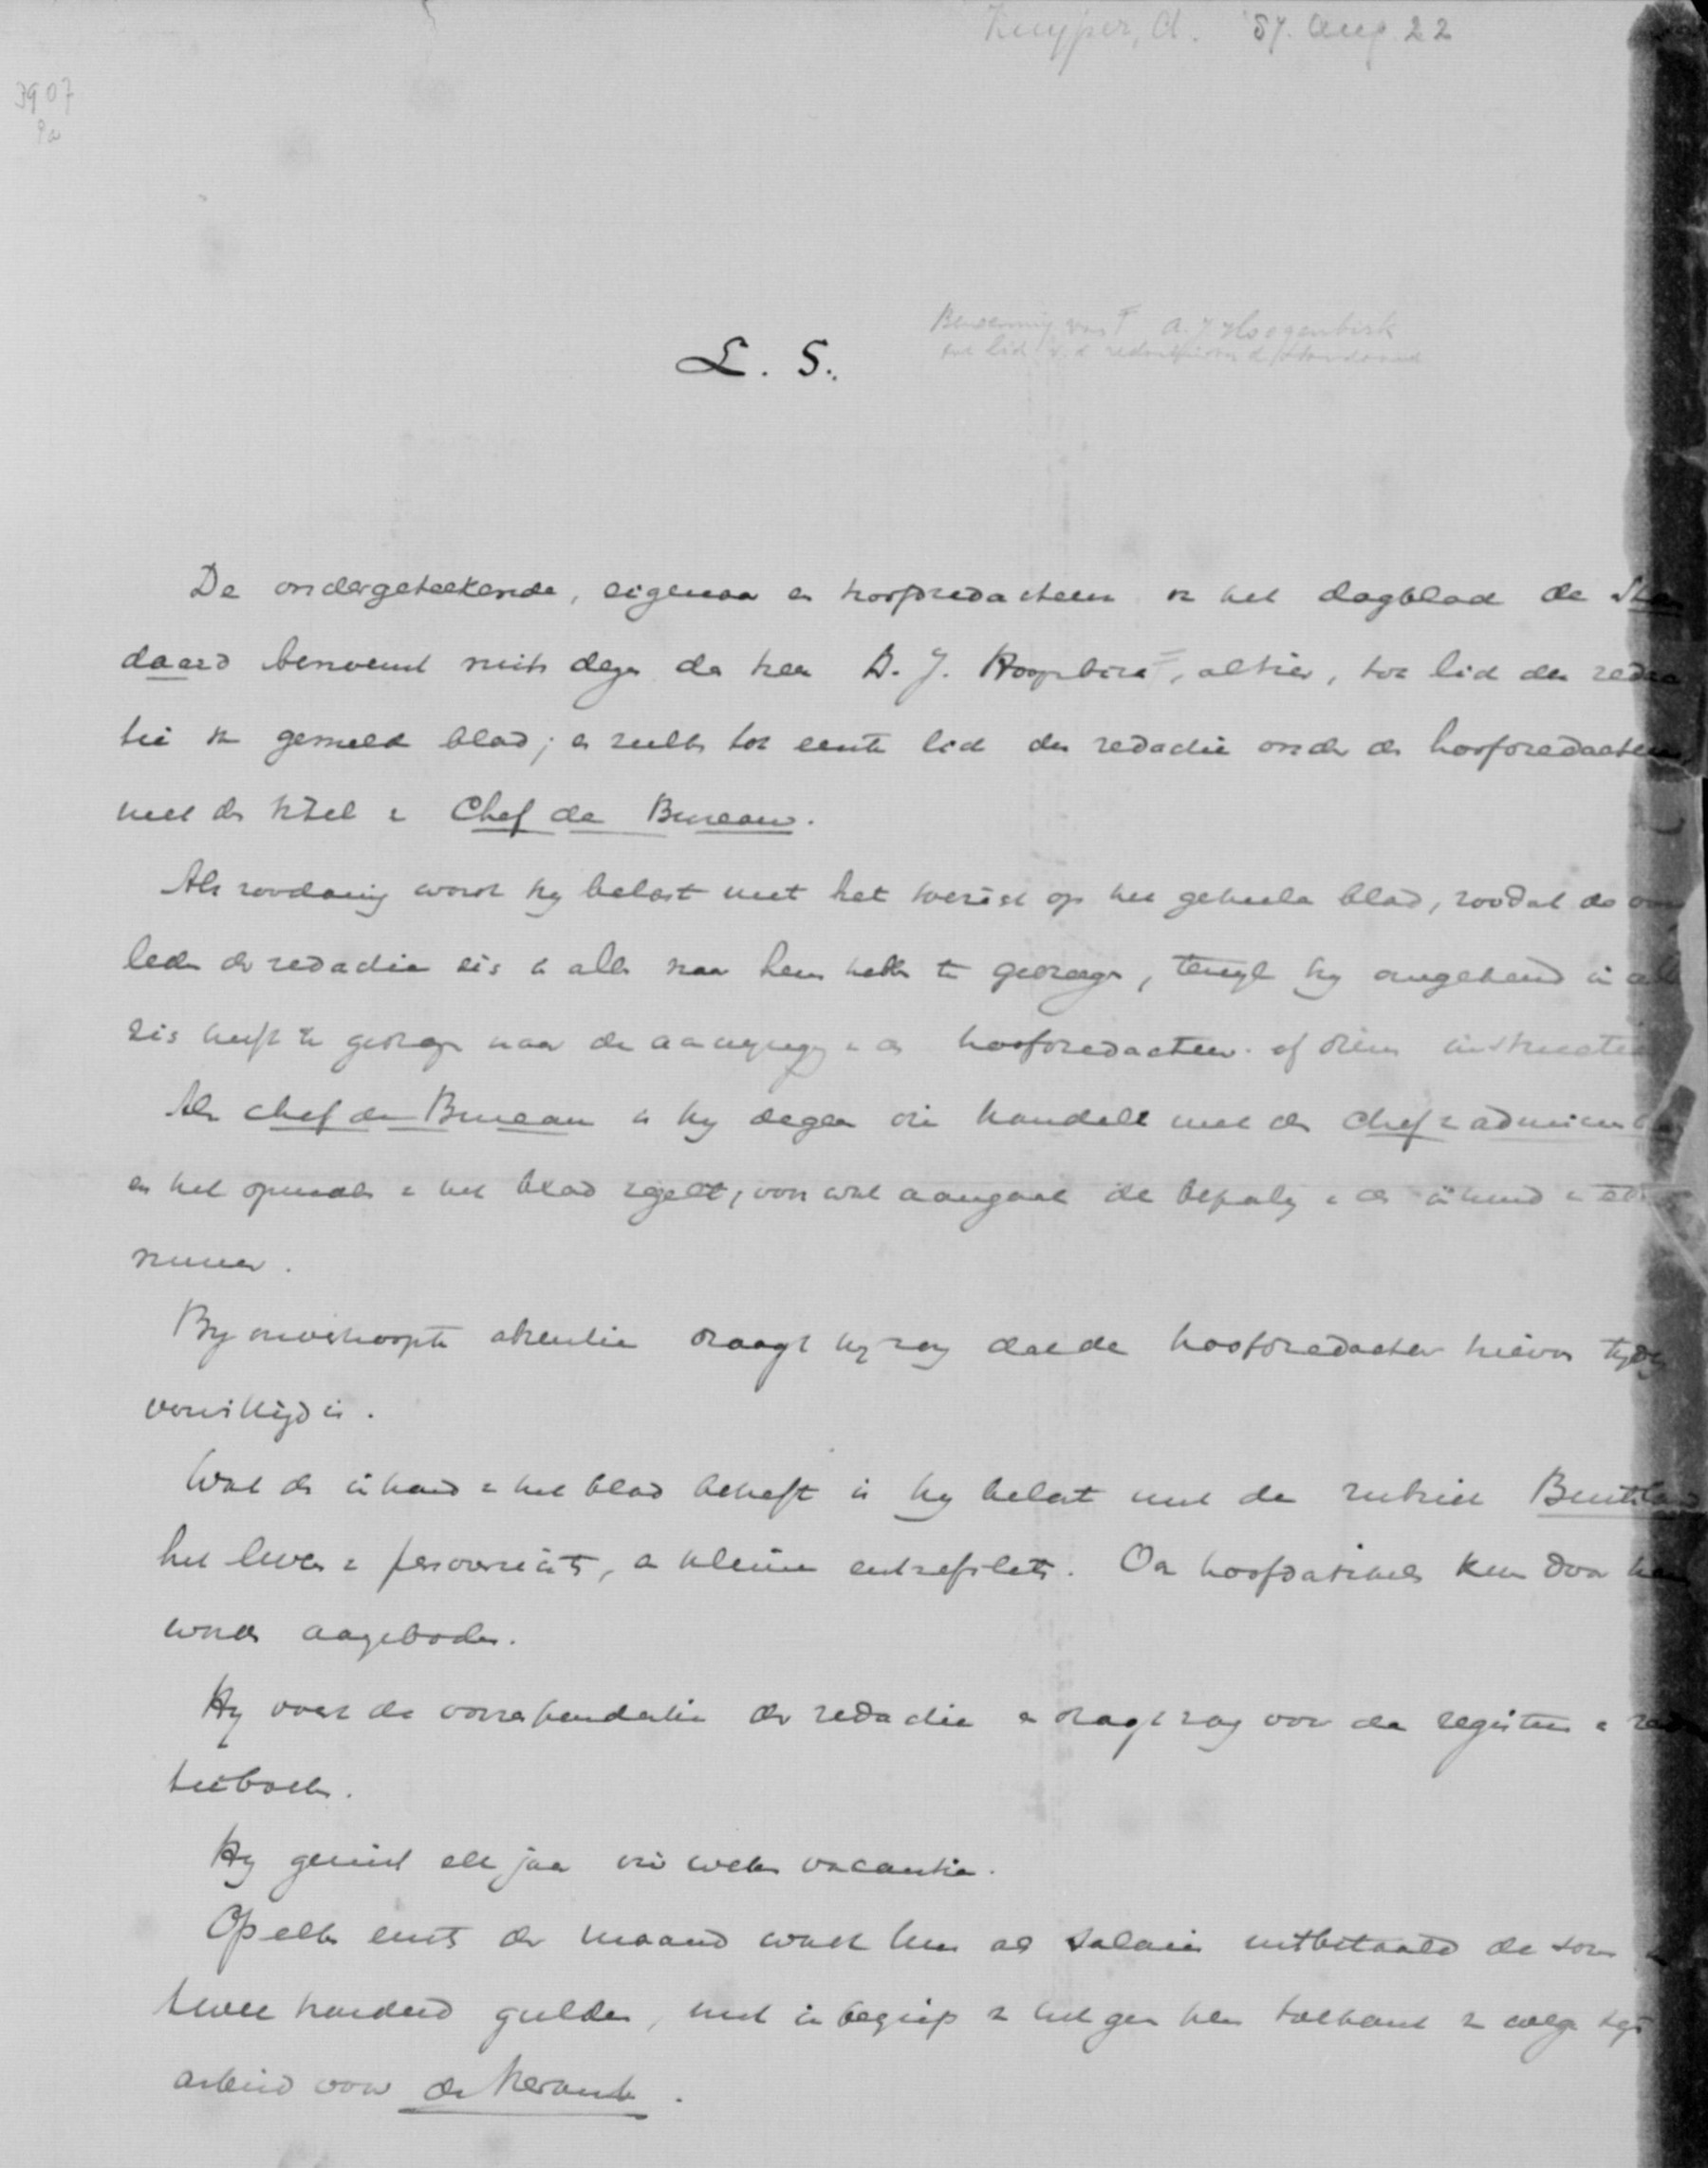 Kuyper, A. '87. Aug. 22
3907
L. S.
Benoeming van A. J. Hoogenbirk
tot lid v. d. redactie van de Standaard
De ondergeteekende, eigenaar en hoofdredacteur van het dagblad de Stan
daard benoemt mits dezen de heer A. J. Hoogenbirk, alhier, tot lid der redac
tie van gemeld blad; en zulks tot eerste lid der redactie onder den hoofdredacteur,
met den titel van Chef de Bureau.
Als zoodanig wordt hy belast met het toezicht op het geheele blad, zoodat de
leden der redactie zich in alles naar hem hebben te gedragen, terwyl hy omgekeerd in
zich heeft te gedragen naar de aanwyzing van den hoofdredacteur of diens instructie
Als chef de Bureau is hy degen die handelt met den chef van administ
en het opmaken van het blad regelt, voor wat aangaat de bepaling van den inhoud van elk
nummer.
By onverhoopte absentie draagt hy zorg dat de hoofdredacteur hiervan tydig
verwittigd is.
Wat den inhoud van het blad betreft is hy belast met de rubriek Buitenland
het leveren van persoverzicht, en kleine entrefilets. Ook hoofdartikels kunnen door hem
worden aangeboden.
Hy voert de correspondentie der redactie en draagt zorg voor de registers en redac
tieboeken.
Hy geniet elk jaar drie weken vacantie.
Op elken eersten der maand wordt hem als salaris uitbetaald de som
twee honderd gulden, met inbegrip van hetgeen hem toekomt van wege zyn
arbeid voor de Heraut.